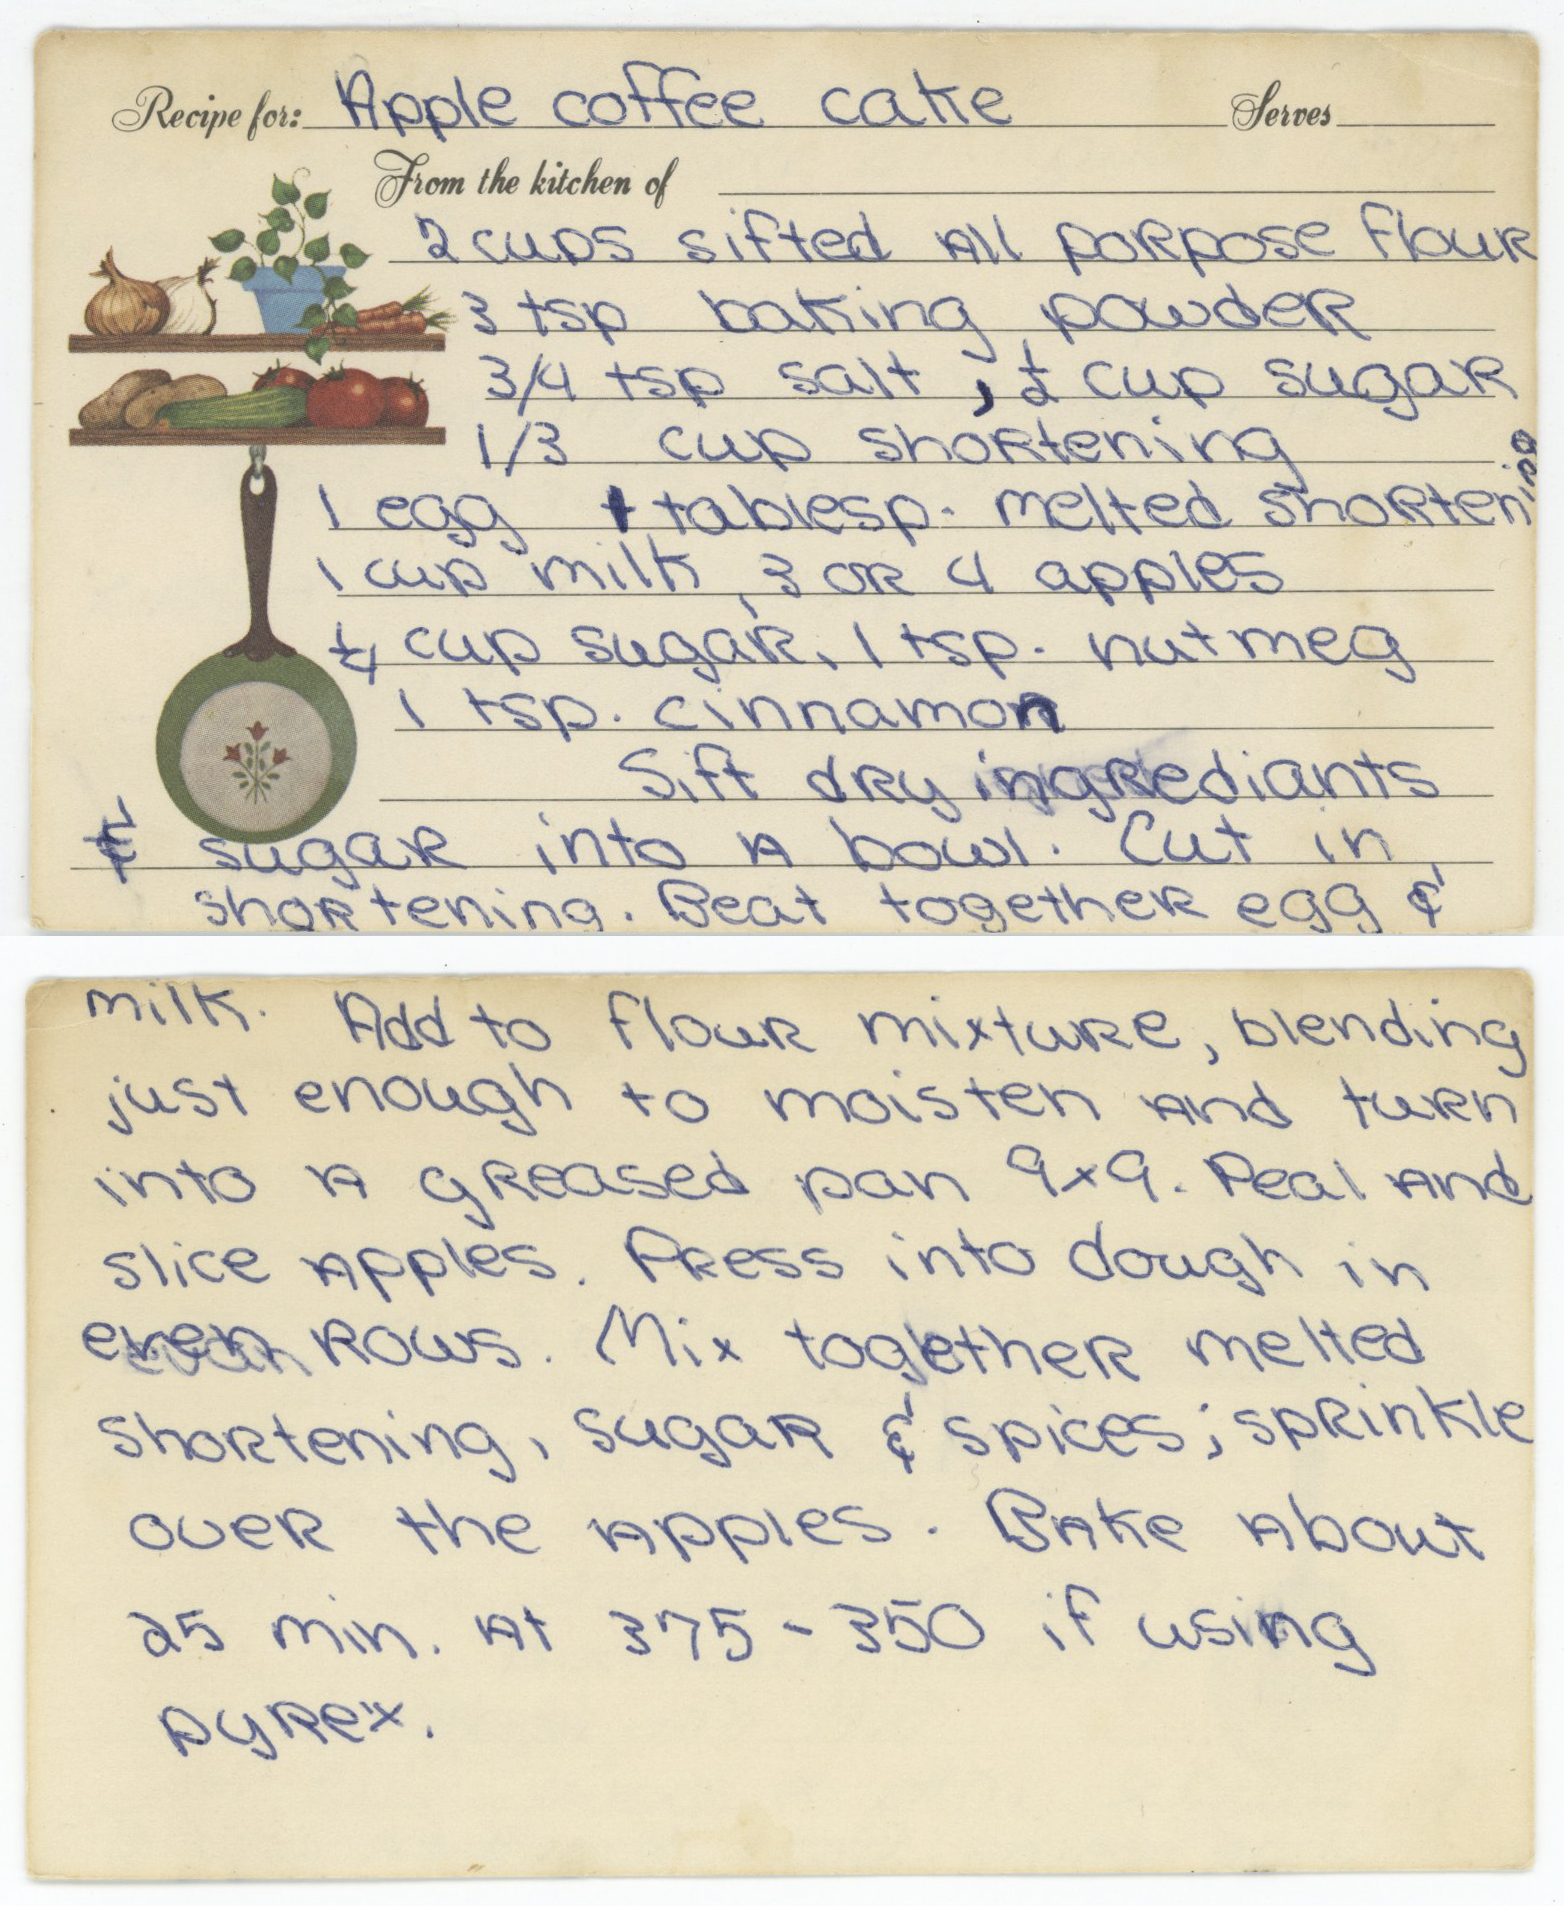 Recipe for: Apple coffee cake Serves
From the kitchen of
2 cups sifted All porpose flour
3 tsp baking powder
3/4 tsp salt, ½ cup sugar
1/3 cup shortening
1 egg 1 tablesp. melted shortening
1 cup milk, 3 or 4 apples
¼ cup sugar, 1 tsp. nutmeg
1 tsp. cinnamon
Sift dry ingrediants
& sugar into A bowl. Cut in
shortening. Beat together egg &
milk. Add to flour mixture, blending
just enough to moisten And turn
into A greased pan 9x9. Peal And
slice Apples. Press into dough in
even rows. Mix together melted
shortening, sugar & spices; sprinkle
over the Apples. Bake About
25 min. At 375 - 350 if using
pyrex.